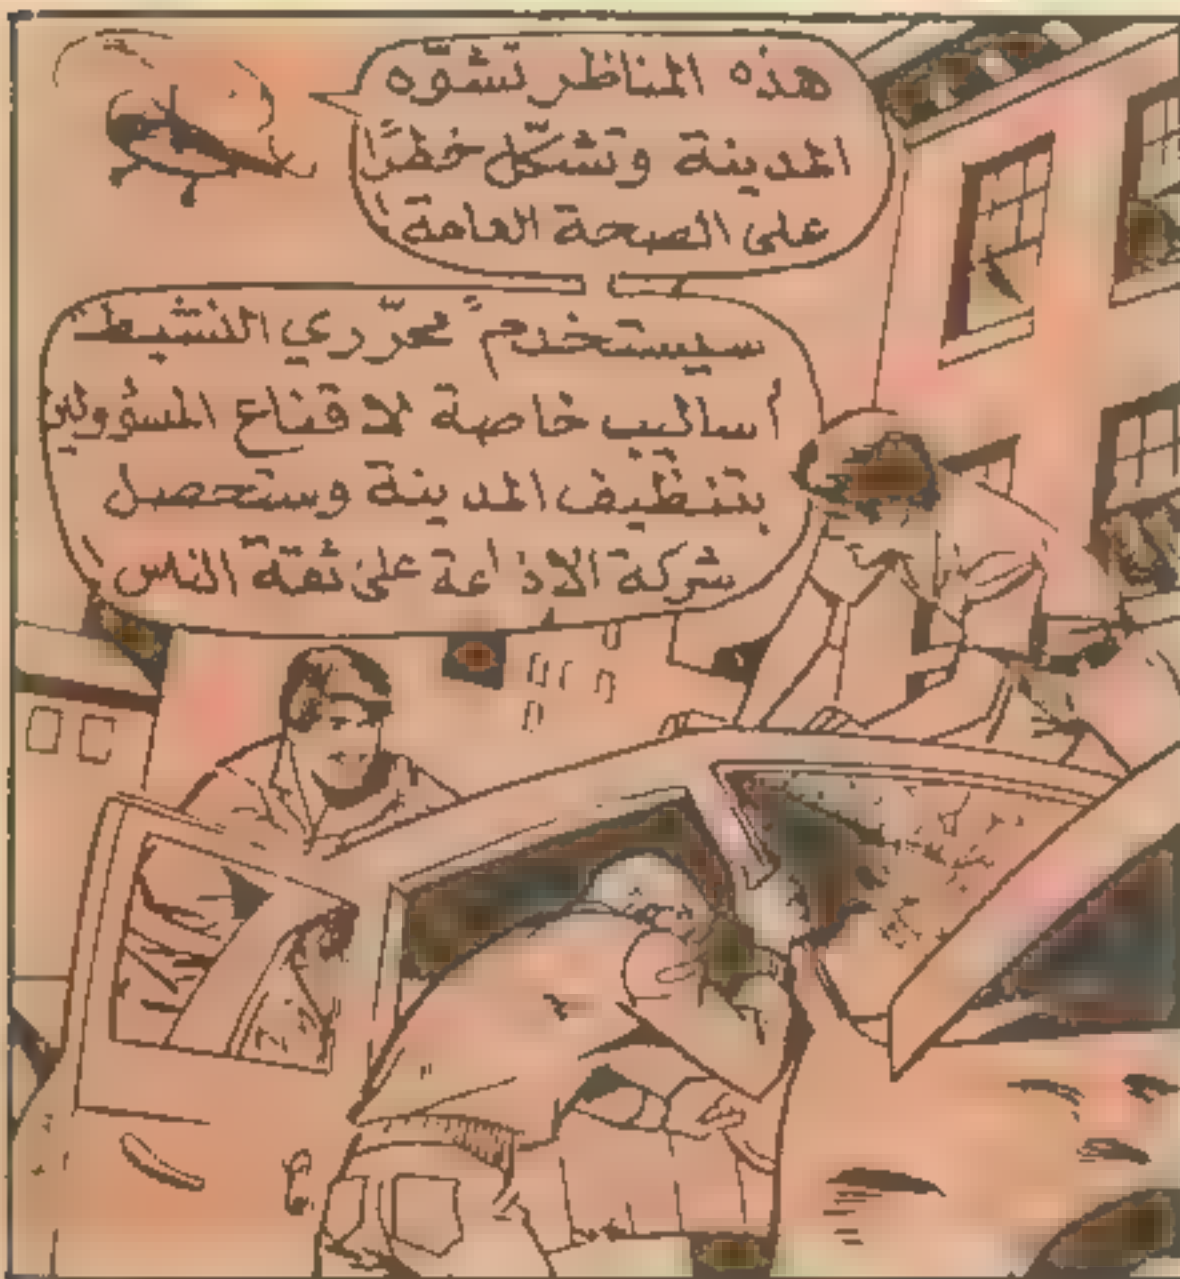 هذه المناظر تشوّه
المدينة وتشكّل خطرًا
على الصحة العامة !
سيستخدم محرّري النشيط
أساليب خاصة لاقناع المسؤولين
بتنظيف المدينة وستحصل
شركة الاذاعة على ثقة الناس !